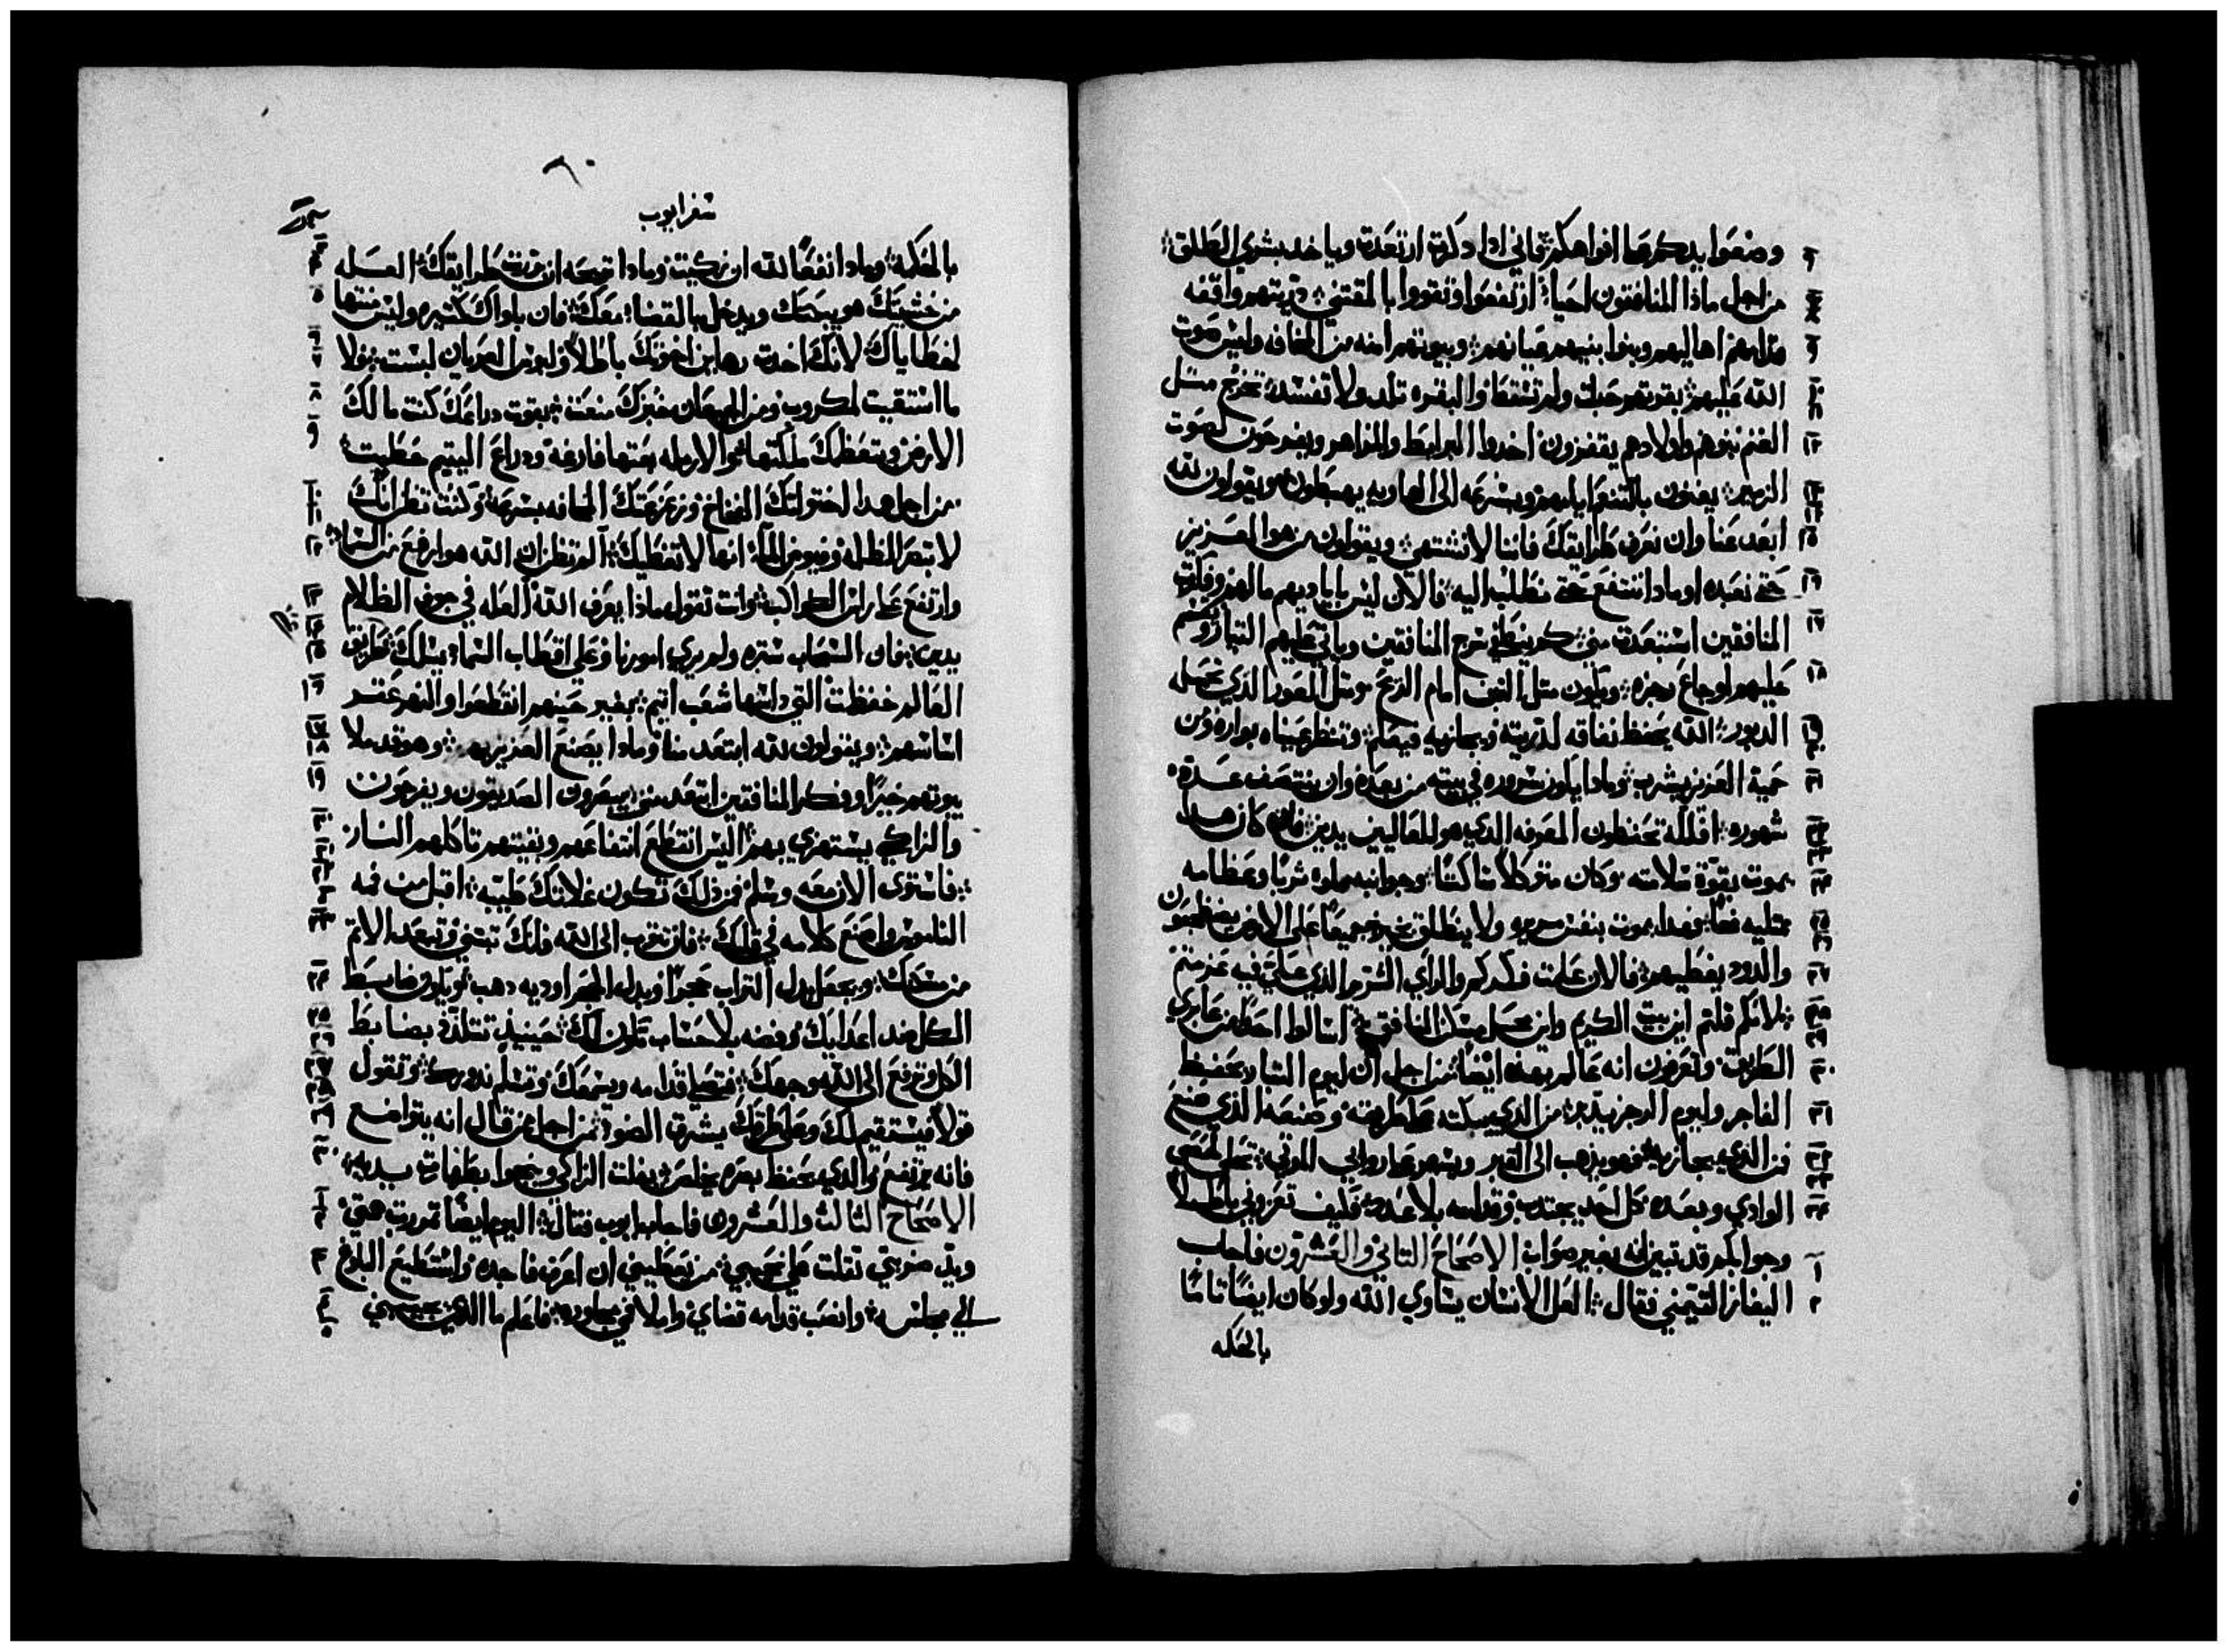 وضعوا يدكم علي افواهكم فاني ادا دكرت ارتعدت وياخد بشري الطلق
من اجل ماذا المنافقون احياء ارتفعوا وتقووا بالمقتني دريتهم واقفه
قدامهم اهاليهم وبنوا بنيهم عيانهم وبيوتهم امنه من المخافه وليس صوت
الله عليهم بقرتهم حبلت ولم تسقط والبقره تلد ولا تفسد تخرج مثل
الغنم بنوهم واولادهم يقفزون اخدوا البرابط والمزاهر ويفرحون لصوت
الزمير يفنون بالتنعم ايامهم وبسرعه الى الهاويه يهبطون ويقولون لله
ابعد عنا وان نعرف طرايقك فاننا لا نشتهي ويقولون من هو العزيز
حتى نعبده او مادا ننتفع حتى نطلب اليه فالان ليس باياديهم مالهم وفكرة
المنافقين استبعدت مني كم ينطفي سرج المنافقين وياتي عليهم التيار ويقسم
عليهم اوجاع رجزه ويكون مثل التبن امام الريح ومثل العور الذي تحمله
الدبور الله يحفظ نفاقه لدريته ويجازيه فيعلم وتنظر عيناه بواره ومن
حمية العزيز يشرب ومادا يكون سروره في بيته من بعده وان ينتصف عدة
شهوره افلله تحفظون المعرفه الدي هو للعاليين يدين فان كان هدا
يموت بقوة سلامته وكان متوكلا ساكنا وجوانبه مملوه شربا وعظامه
ممتليه مخا وهدا يموت بنفس مريره ولا ينطلق بخير جميعا على الارض يضطجعون
والدود يغطيهم فالان علمت فكركم والراي الشرير الذي علي فيه عزمتم
لانكم قلتم اين بيت الكريم واين محل مسكن المنافق اسالوا احدا من عابري
الطريق وتعرفون انه عالم بهذه ايضا من اجل ان ليوم الفساد يحفظ
الفاجر وليوم الرجز يدبر من الذي يبكته على طريقه وصنعه الذي صنع
فمن الذي يجازيه فهو يذهب الى القبر ويسهر على روابي الموتي تحلي لحصى
الوادي وبعده كل احد يجتدب وقدامه بلا عدد فكيف تعزوني باطلا
وجوابكم قد تبين انه بغير صواب الاصحاح التاني والعشرون فاجاب
اليفاز التيمني فقال العل الانسان يساوي الله ولو كان ايضا تاما
بالحكمه
٦٠
سفر ايوب
بالحكمة ومادا نفعا لله ان زكيت ومادا تربحه ان قومت طرايقك العله
من خشيتك هو يبكتك ويدخل بالقضاء معك فان باواك كثيره وليس منتها
لخطاياك لانك اخدت رهاين اخوتك باطلا ولبوس العريان لبست ولا
ما استقيت لمكروب ومن الجيعان خبزك منعت بقوت دراعك كنت مالك
الارض وبتعظمك ملكتها والارمله بعتها فارغه ودراع اليتيم حطيت
من اجل هدا احتولتك الفخاخ وزعزعتك المخافه بسرعه وكنت تظن انك
لا تبصر الظلمه وفيوض المآء انها لا تغطيك العل تظن ان الله هو ارفع من السماء
وارتفع علي راس الكواكب وانت تقول ماذا يعرف الله العله في جوف الظلام
يدين فان السحاب ستره ولم يري امورنا وعلي اقطاب السماء يسلك طريق
العالم حفظت التي داستها شعب اتيم بغير حينهم انقطعوا والنهر غير
اساسهم ويقولون لله ابتعد منا ومادا يصنع العزيز بهم وهو قد ملا
بيوتهم خيرا وفكر المنافقين ابتعد مني يبصرون الصديقون ويفرحون
والزاكي يستهزي بهم اليس انقطع انتفاعهم وبقيتهم تاكلهم النار
فاستوي الان معه وسلم فمن ذلك تكون غلاتك طيبه اقبل من فمه
الناموس واصنع كلامه في قلبك فان تقرب الى الله فانك تبتني وتبعد الاتم
من مسكنك ويجعل بدل التراب حجرا وبدل الحجر اوديه دهب ويكون ضابط
الكل ضد اعدايك وفضه بلا حساب تكون لك حينيذ تتلذذ بضابط
الكل وترفع الى الله وجهك فتصلي قدامه ويسمعك وتسلم ندورك وتقول
قولا فيستقيم لك وعلي طرقك يشرق الضوء من اجل من قال انه يتواضع
فانه يرتفع والدي يحفظ بصره يخلص يفلت الزاكي ونجوا بطهارت يديه
الاصحاح الثالث والعشرون فاجاب ايوب فقال اليوم ايضا تمررت حجتي
ويد ضربتي تقلت علي نحيبي من يعطيني ان اعرف فاجده واستطيع البلوغ
الي مجلسه وانصب قدامه قضاي واملا فمي مجاوره فاعلم ما الدي يجيبني